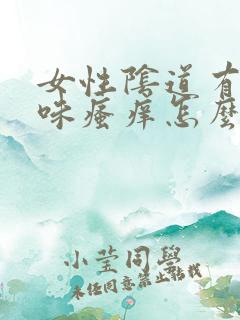 女性陰道有
味瘙痒怎麼
小莹同學
未经同意禁止转载